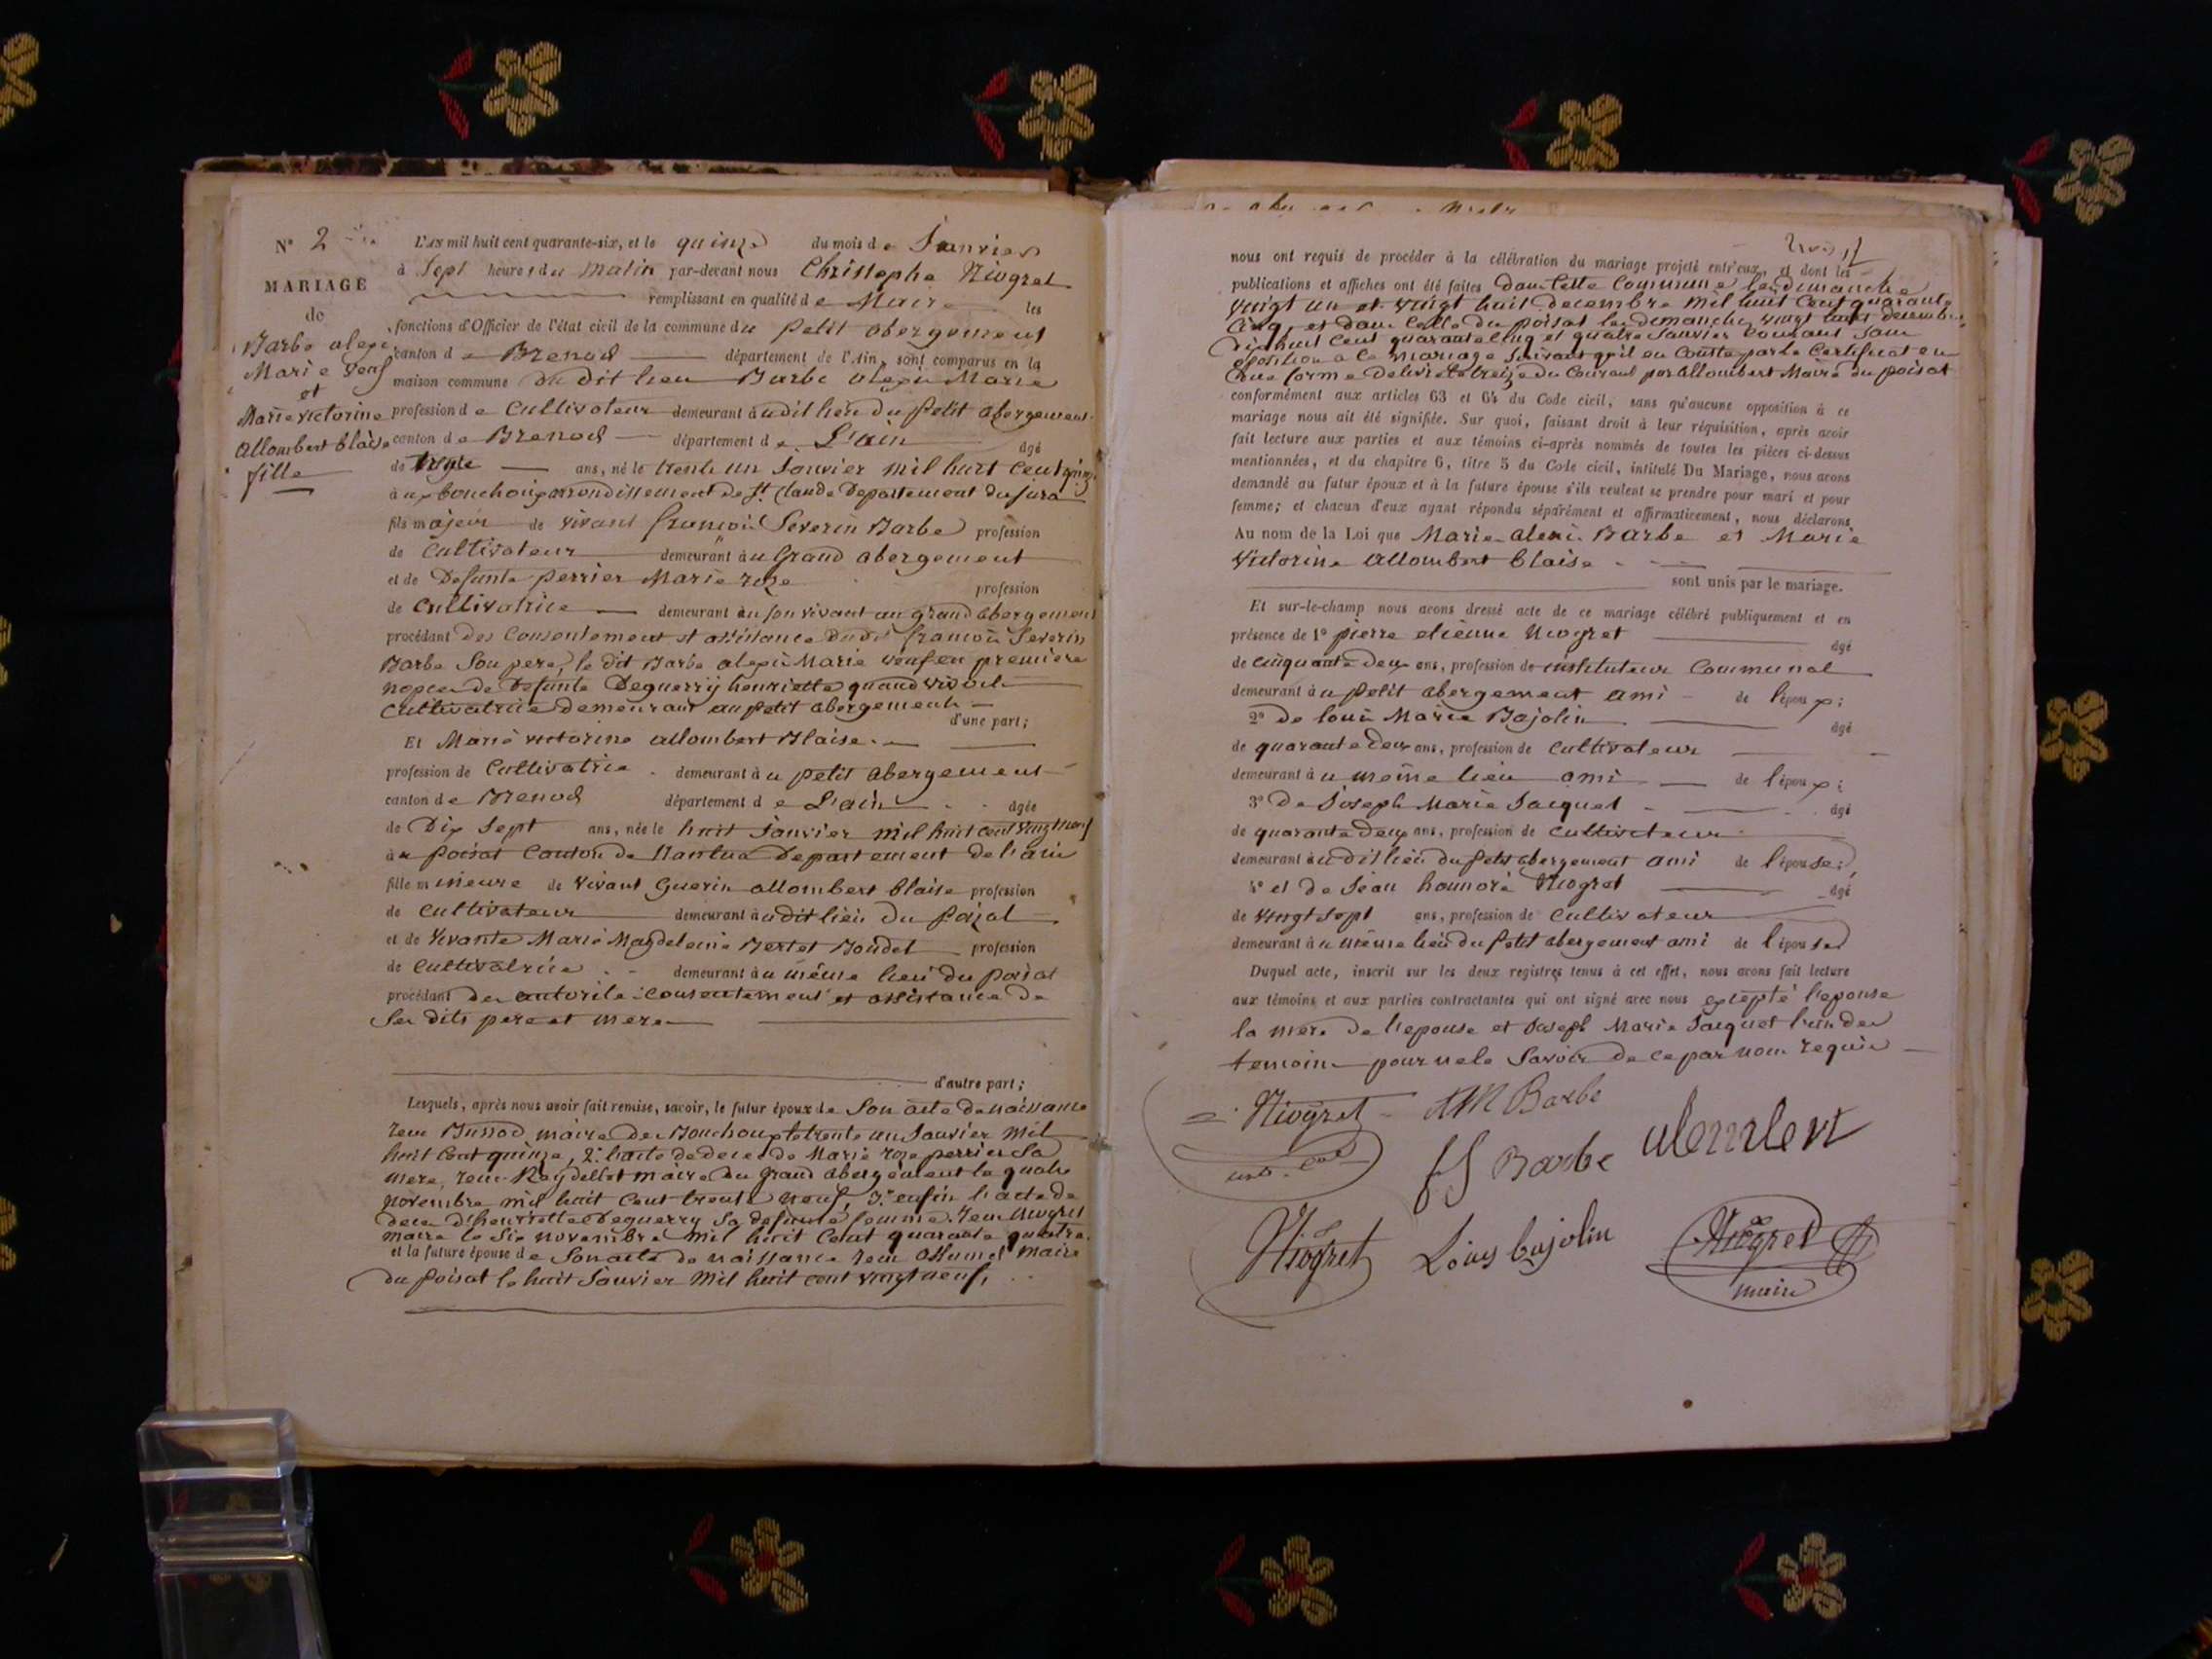 N° 2
MARIAGE
de
Barbe alexi
Marie veuf
et
Marie victorine
allombert blaise
fille
L'AN mil huit cent quarante-six, et le quinze du mois de Janvier
à Sept heures du Matin par-devant nous Christophe Niogret
remplissant en qualité de Maire les
fonctions d'Officier de l'état civil de la commune du petit abergement
canton de Brenod département de l'Ain, sont comparus en la
maison commune du dit lieu Barbe alexis Marie
profession de Cultivateur demeurant audit lieu du petit abergement
canton de Brenod département de L'ain âgé
de trente ans, né le trente un Janvier mil huit cent quinze
aux bouchoux arrondissement de St Claude Departement du jura
fils majeur de vivant francois Severin Barbe profession
de Cultivateur demeurant au Grand abergement
et de Defunte perrier Marie roze profession
de Cultivatrice demeurant en son vivant au grand abergement
procédant des Consentement et assistance dudit francois Severin
Barbe Son pere, le dit Barbe alexis Marie veuf en premiere
nopces de Defunte Deguerry henriette quand vivoit
Cultivatrice demeurant au petit abergement
d'une part;
Et Marie victorine allombert Blaise
profession de Cultivatrice demeurant au petit abergement
canton de Brenod département de L'ain âgée
de Dix Sept ans, née le huit Janvier mil huit cent vingt neuf
au poisat Canton de Nantua Departement de l'ain
fille mineure de vivant Guerin allombert blaise profession
de Cultivateur demeurant audit lieu Du poizat
et de vivante Marie Magdeleine Bertet Boudet profession
de Cultivatrice demeurant au même lieu du poisat
procédant des autorite consentement et assistance de
Ses dits pere et mere
d'autre part;
Lesquels, après nous avoir fait remise, savoir, le futur époux de Son acte de naissance
recu Bussod maire des Bouchoux le trente un Janvier mil
huit Cent quinze, 2° l'acte de deces de Marie roze perrier Sa
mere, recu Reydellet maire du Grand abergement le quatre
novembre mil huit Cent trente neuf, 3° enfin l'acte de
deces d'henriette Deguerry Sa defunte femme. recu Niogret
maire le Six novembre mil huit Cent quarante quatre.
et la future épouse de Son acte de naissance recu maire
du poisat le huit Janvier mil huit cent vingt neuf.
nous ont requis de procéder à la célébration du mariage projeté entr'eux, et dont les
publications et affiches ont été faites dans cette Commune les dimanche
vingt un et vingt huit decembre mil huit Cent quarante
Cinq, et dans Celle du poisat les dimanches vingt huit decembre
dix huit Cent quarante cinq et quatre Janvier Courant sans
oposition a ce mariage Suivant qu'il en Conste par le Certificat en
bonne forme Delivré le treize du Courant par allombert Maire du poisat
conformément aux articles 63 et 64 du Code civil, sans qu'aucune opposition à ce
mariage nous ait été signifiée. Sur quoi, faisant droit à leur réquisition, après avoir
fait lecture aux parties et aux témoins ci-après nommés de toutes les pièces ci-dessus
mentionnées, et du chapitre 6, titre 5 du Code civil, intitulé Du Mariage, nous avons
demandé au futur époux et à la future épouse s'ils veulent se prendre pour mari et pour
femme; et chacun d'eux ayant répondu séparément et affirmativement, nous déclarons
Au nom de la Loi que Marie alexis Barbe et Marie
Victorine allombert blaise
sont unis par le mariage.
Et sur-le-champ nous avons dressé acte de ce mariage célébré publiquement et en
présence de 1° pierre etienne Niogret âgé
de cinquante deux ans, profession de instituteur Communal
demeurant au petit abergement ami de l'époux;
2° De louis Marie Bajolin âgé
de quarante deux ans, profession de Cultivateur
demeurant au même lieu ami de l'époux;
3° De Joseph Marie Jacquet âgé
de quarante deux ans, profession de cultivateur
demeurant audit lieu du petit abergement ami de l'épouse;
4° et de Jean honnoré Niogret âgé
de vingt Sept ans, profession de Cultivateur
demeurant au même lieu du petit abergement ami de l'épouse
Duquel acte, inscrit sur les deux registres tenus à cet effet, nous avons fait lecture
aux témoins et aux parties contractantes qui ont signé avec nous excepté l'epouse
la mere de l'epouse et Joseph Marie Jacquet l'un des
temoins pour ne le Savoir de ce par nous requis
Niogret AM Barbe
FS Barbe
Niogret Louis bajolin Niogret
maire